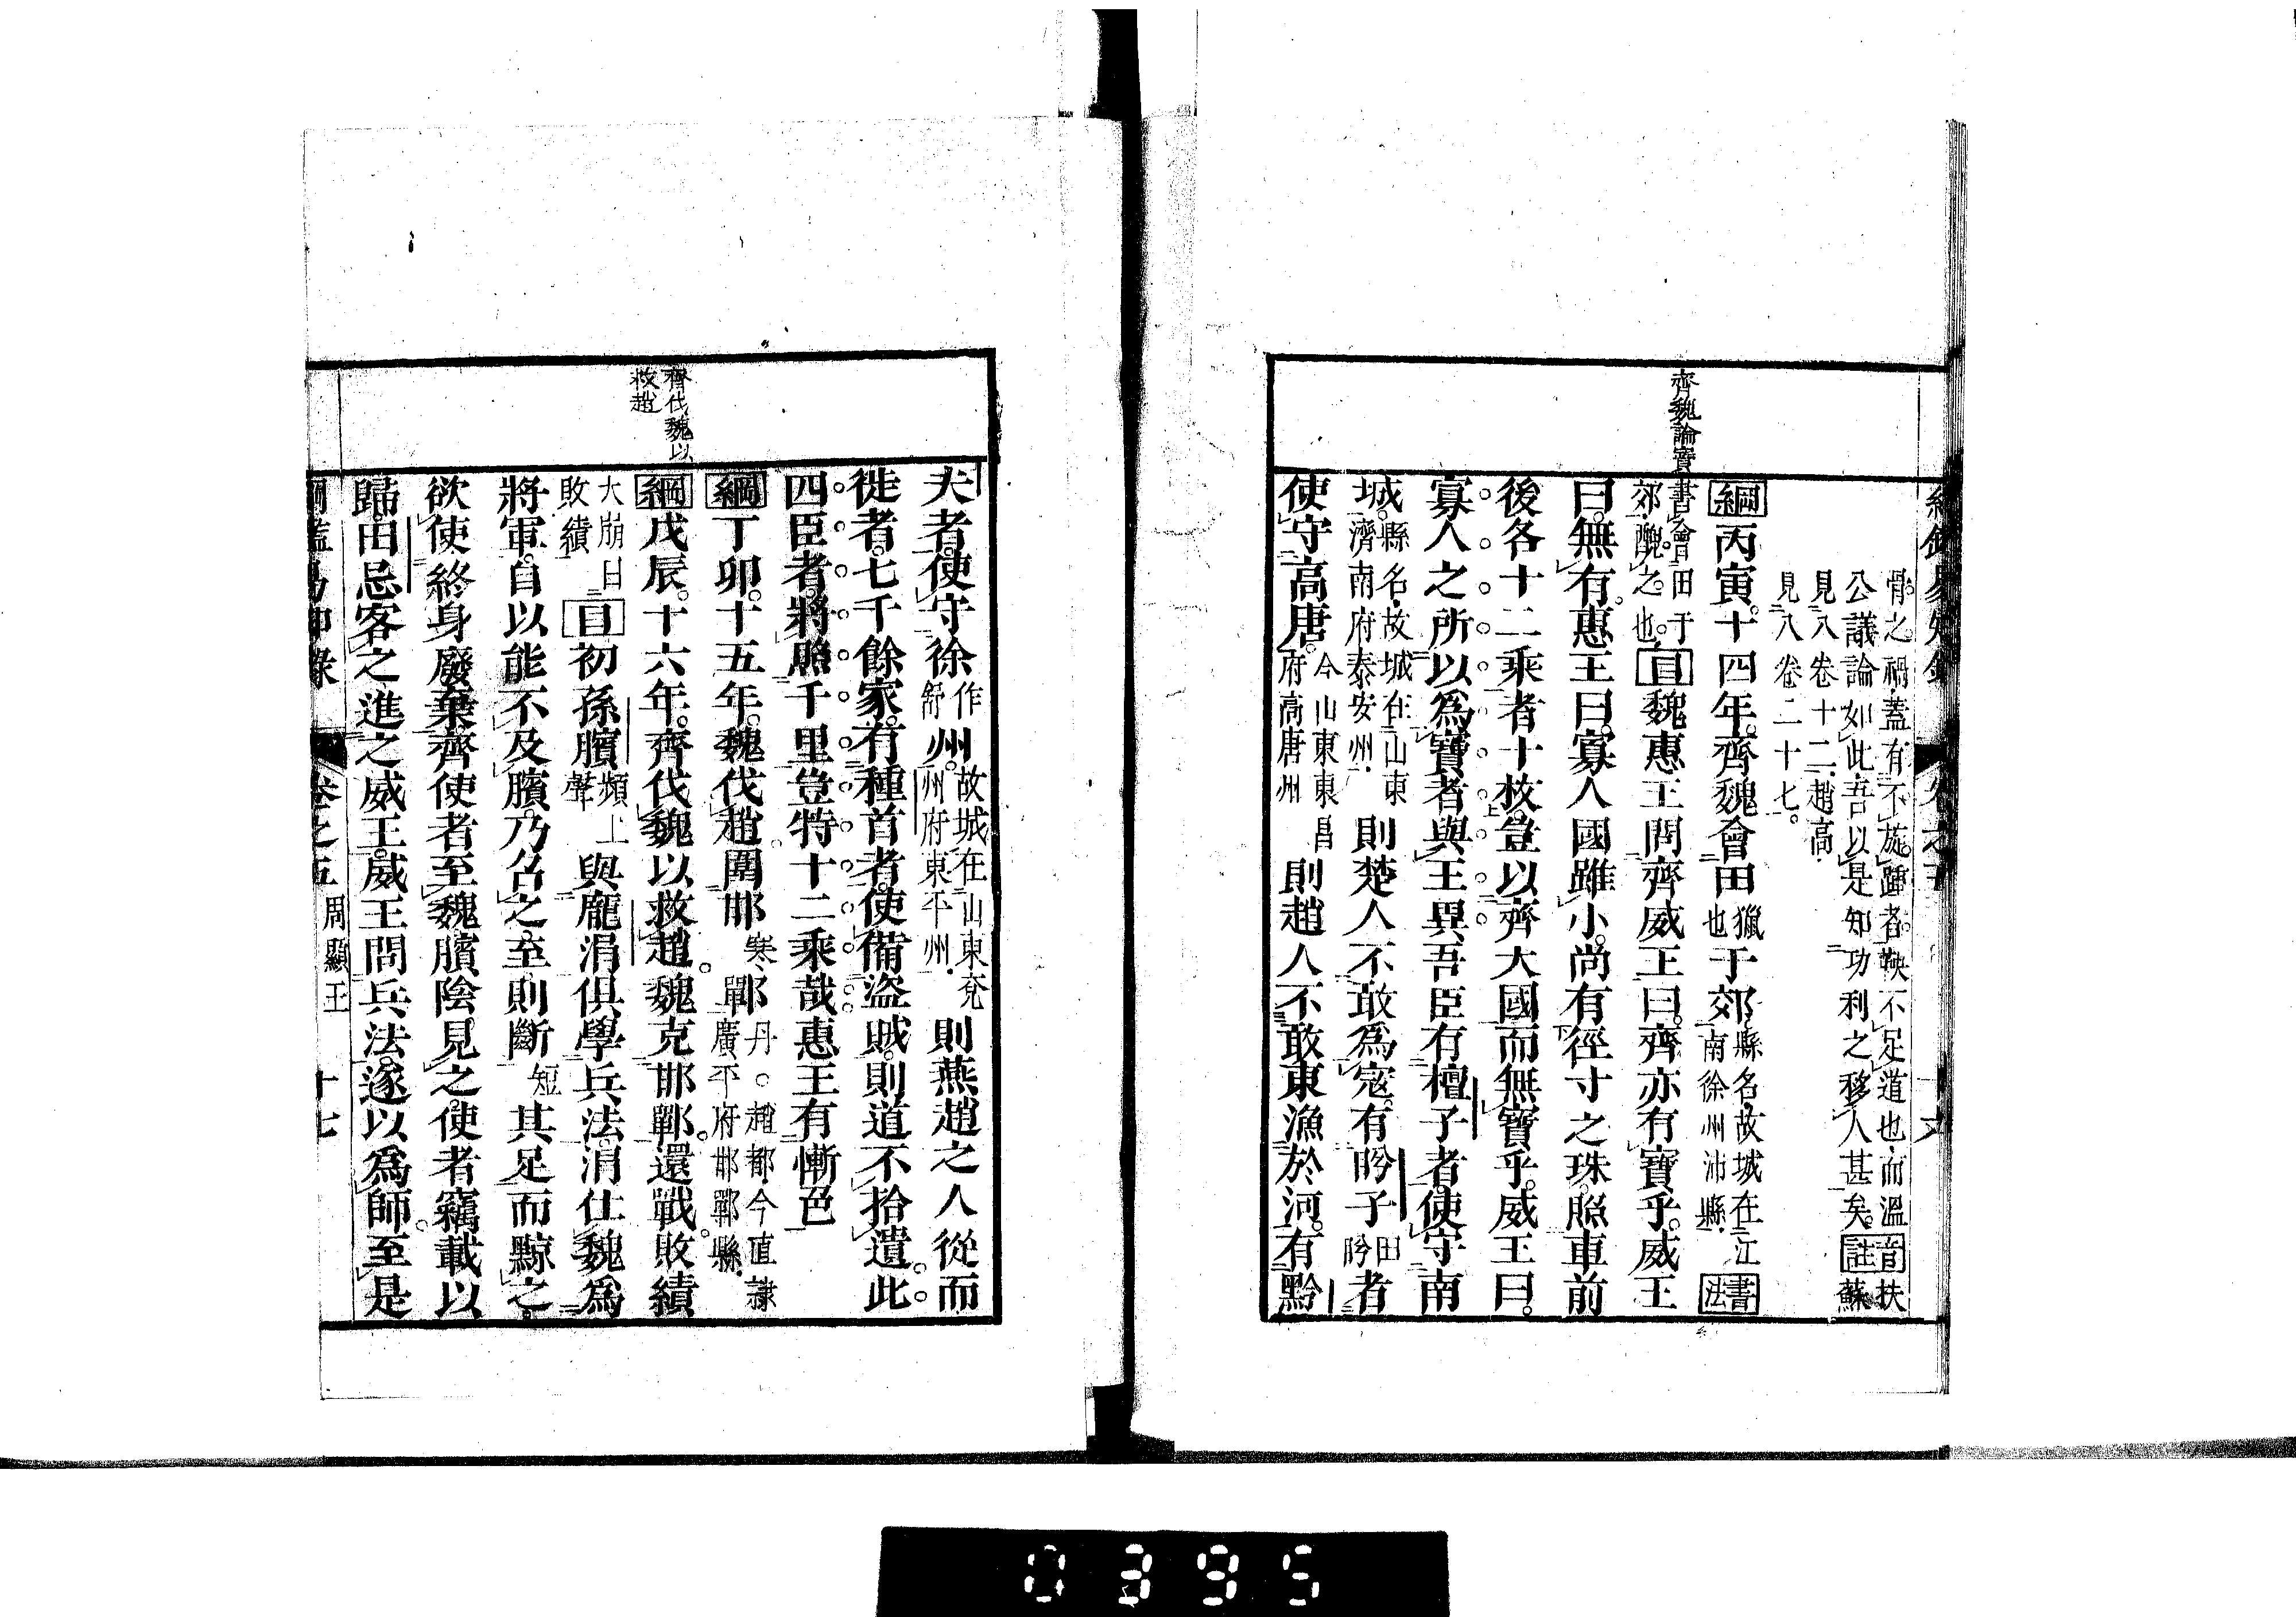 齊魏論寶
骨之禍蓋有不旋踵者鞅不足道也而溫
公議論如此吾以是知功利之移人甚矣
音註
扶蘇
見八卷十二趙高
見八卷二十七
綱丙寅十四年齊魏會田獵也于郊縣名故城在江南徐州沛縣書法
書會田于郊醜之也目魏惠王問齊威王曰齊亦有寶乎威王
曰無有惠王曰寡人國雖小尚有徑寸之珠照車前
後各十二乘者十枚豈以齊大國而無寶乎威王曰
寡人之所以爲寶者與王異吾臣有檀子者使守南
城縣名故城在山東濟南府泰安州則楚人不敢爲寇有肹子田肹者
使守高唐今山東東昌府高唐州則趙人不敢東漁於河有黔
齊伐魏以
救趙
夫者使守徐作舒州故城在山東兗州府東平州則燕趙之人從而
徙者七千餘家有種首者使備盜賊則道不拾遺此
四臣者將照千里豈特十二乘哉惠王有慚色
綱丁卯十五年魏伐趙圍邯寒鄲丹○趙都今直隸廣平府邯鄲縣
綱戊辰十六年齊伐魏以救趙魏克邯鄲還戰敗績
大崩曰敗績目初孫臏頻上聲與龐涓俱學兵法涓仕魏爲
將軍自以能不及臏乃召之至則斷短其足而黥之
欲使終身廢棄齊使者至魏臏陰見之使者竊載以
歸田忌客之進之威王威王問兵法遂以爲師至是
綱鑑易知錄 卷之五 周顯王 十七
0395